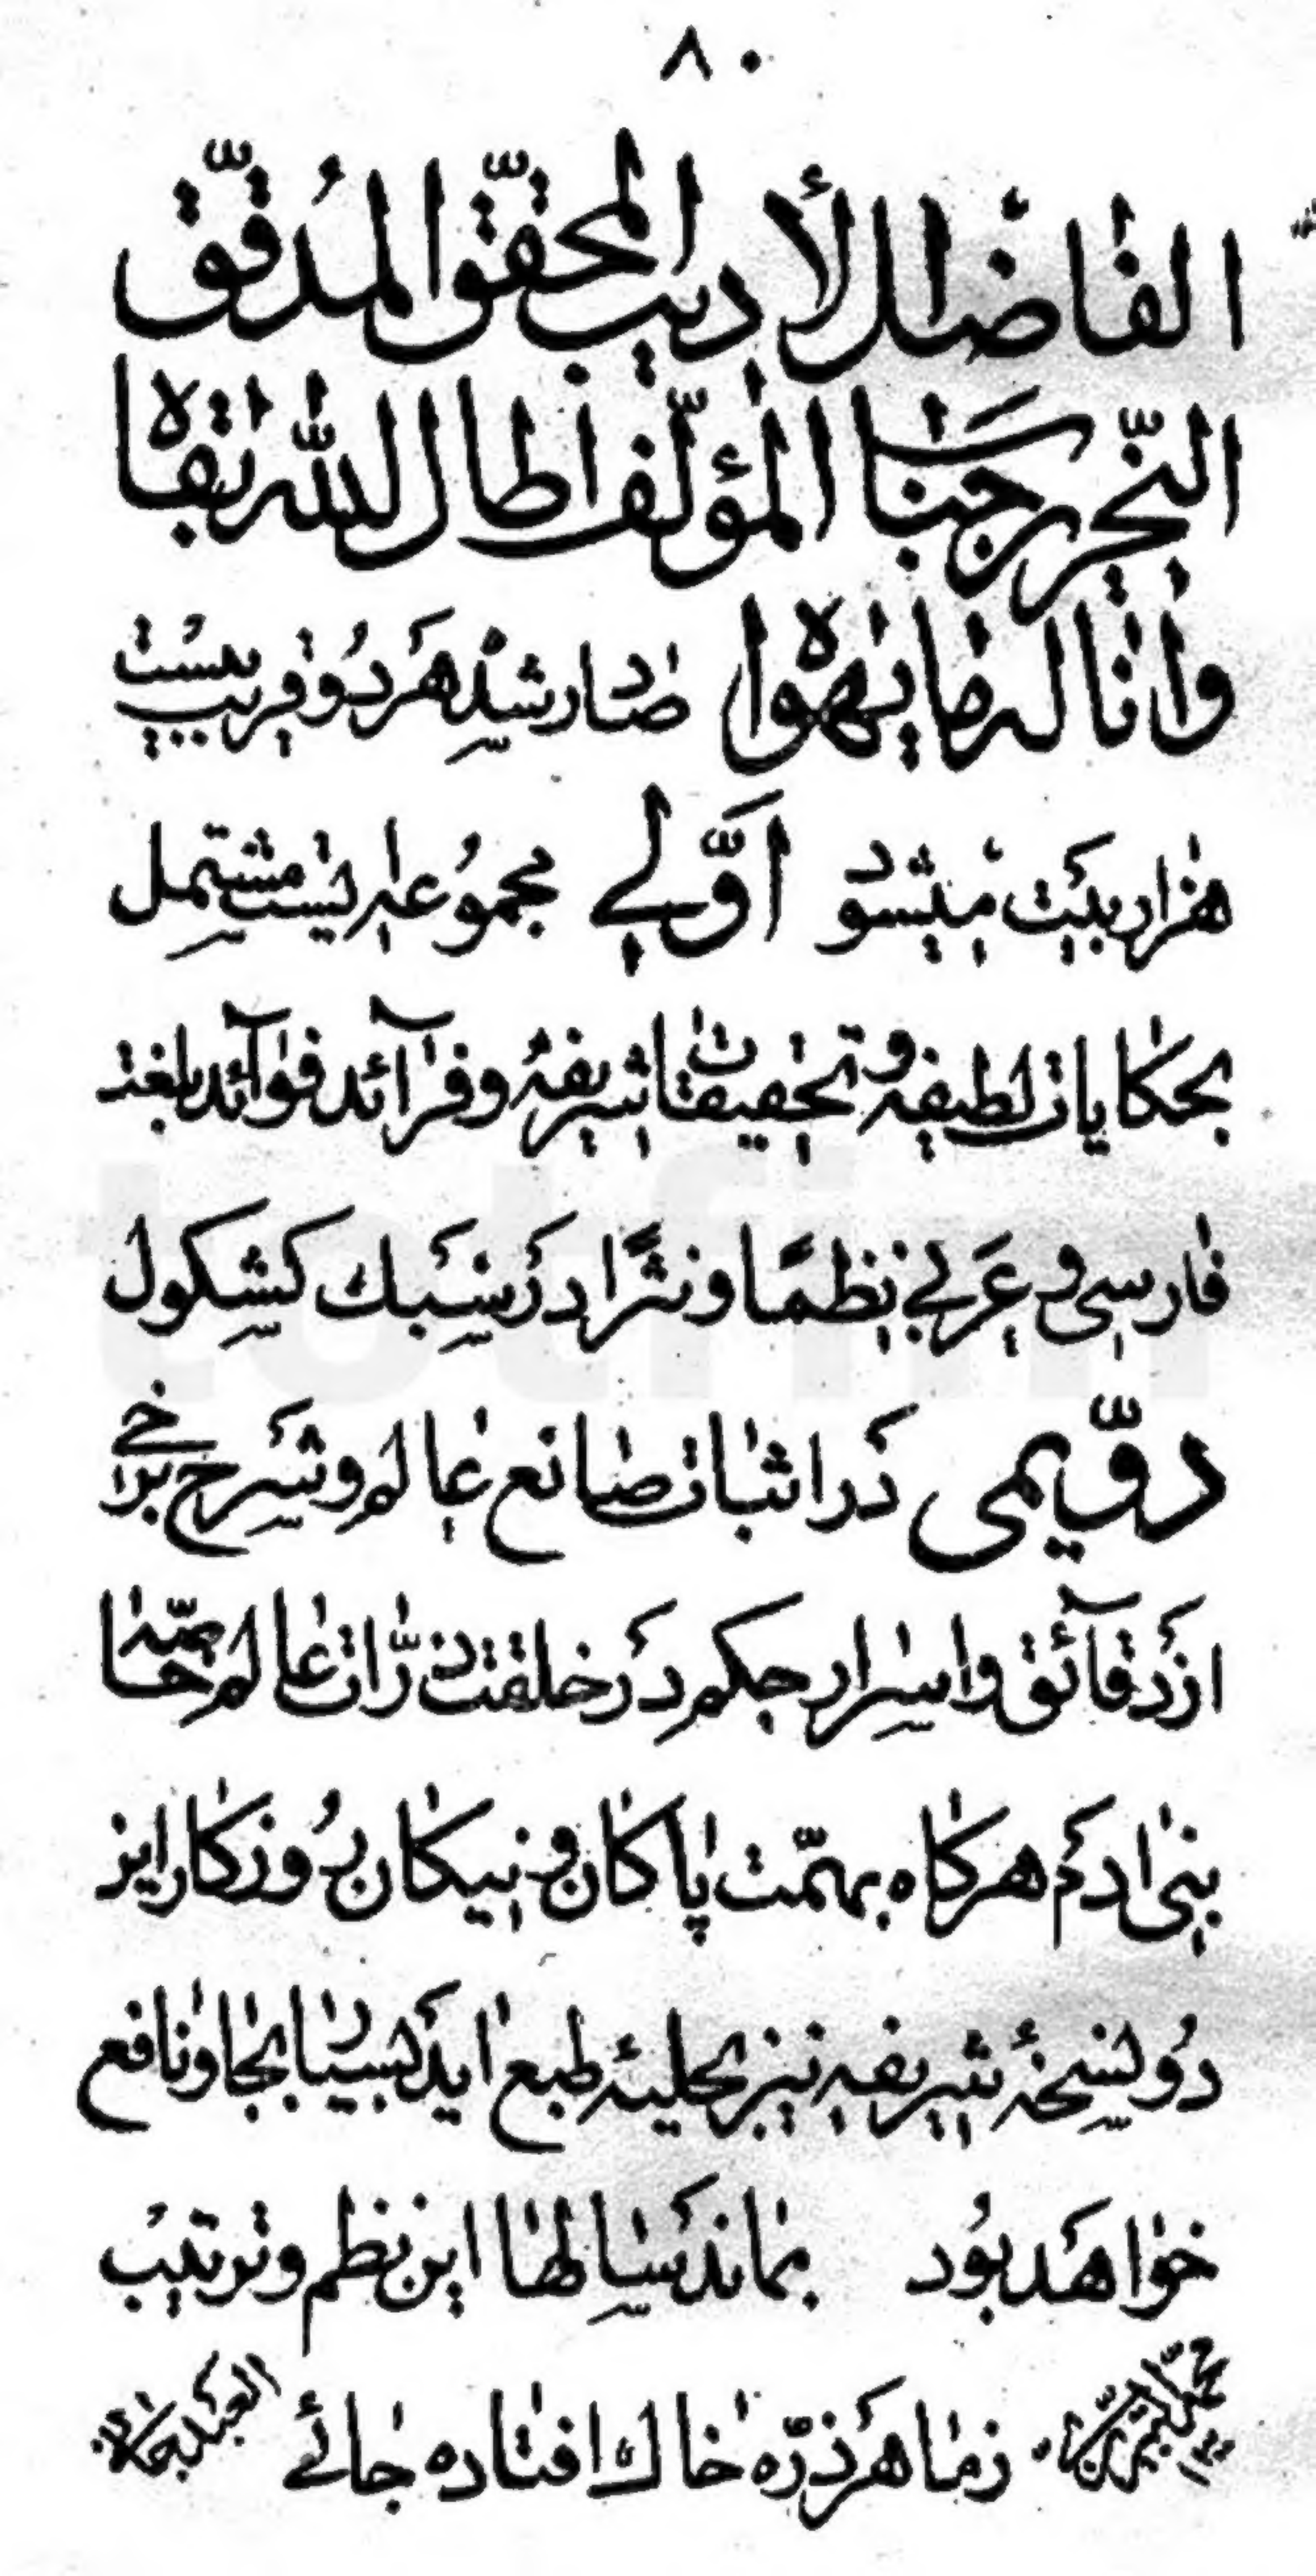 ۸۰
الفاضل الأديب المحقّق المُدقّق
النّحرير جناب المؤلّف اطال الله بقاه
وانا له ما يهواه صادر شده هر دو قريب بيست
هزار بيت ميشود اوّلي مجموعه ايست مشتمل
بحكايات لطيفه و تحقيقات شريفه و فرآئد فوآئد بلغت
فارسى و عربي نظمًا و نثرًا در سبك كشكول
دوّيمى در اثبات صانع عالم و شرح برخي
از دقآئق و اسرار حكم در خلقت ذرّات عالم خاصّه
بنى ادم هركاه بهمّت پاكان و نيكان روزكار اين
دو نسخهٔ شريفه نيز بحليهٔ طبع ايد بسيار بجا و نافع
خواهد بود بماند سالها اين نظم و ترتيب
زما هر ذرّه خاك افتاده جائے العبد